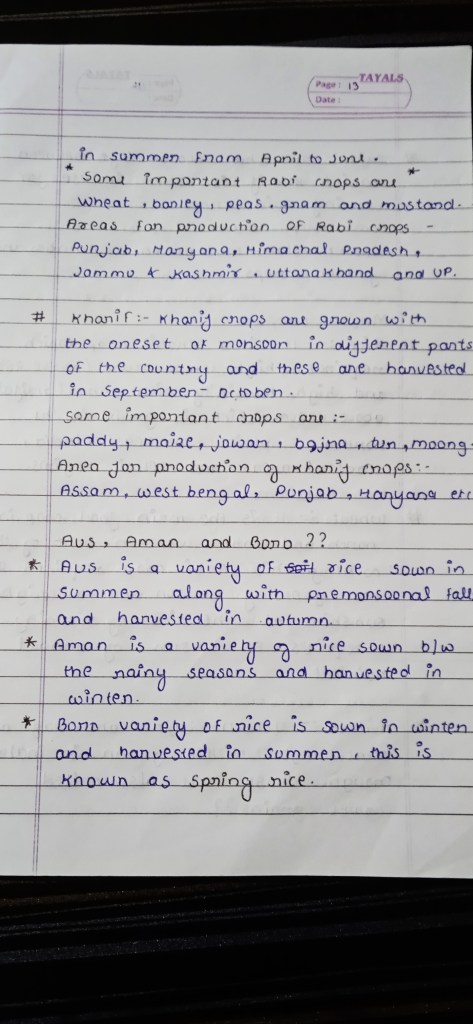 TAYALS
Page: 13
Date:
in summer from April to June.
* Some important Rabi crops are *
wheat, barley, peas, gram and mustard.
Areas for production of Rabi crops -
Punjab, Haryana, Himachal Pradesh,
Jammu & Kashmir, Uttarakhand and UP.
# Kharif :- Kharif crops are grown with
the oneset of monsoon in different parts
of the country and these are harvested
in September - October.
Some important crops are :-
paddy, maize, jowar, bajra, tur, moong.
Area for production of Kharif crops:-
Assam, west bengal, Punjab, Haryana etc
Aus, Aman and Boro ??
* Aus is a variety of soil rice sown in
summer along with premonsoonal fall
and harvested in autumn.
* Aman is a variety of rice sown b/w
the rainy seasons and harvested in
winter.
* Boro variety of rice is sown in winter
and harvested in summer, this is
known as spring rice.